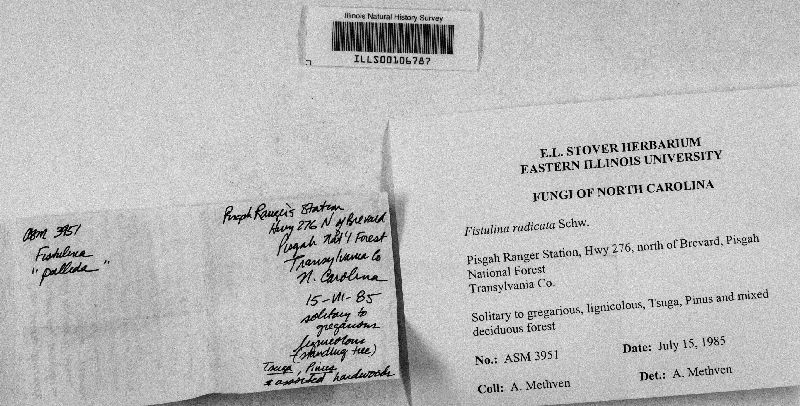 Illinois Natural History Survey
ILLS00106787
ASM 3951
Fistulina
"pallida"
Pisgah Ranger's Station
Hwy 276 N of Brevard
Pisgah Nat'l Forest
Transylvania Co
N. Carolina
15-VII-85
solitary to
gregarious
lignicolous
(standing tree)
Tsuga, Pinus
+ assorted hardwoods
E.L. STOVER HERBARIUM
EASTERN ILLINOIS UNIVERSITY
FUNGI OF NORTH CAROLINA
Fistulina radicata Schw.
Pisgah Ranger Station, Hwy 276, north of Brevard, Pisgah
National Forest
Transylvania Co.
Solitary to gregarious, lignicolous, Tsuga, Pinus and mixed
deciduous forest
No.: ASM 3951 Date: July 15, 1985
Coll: A. Methven Det.: A. Methven